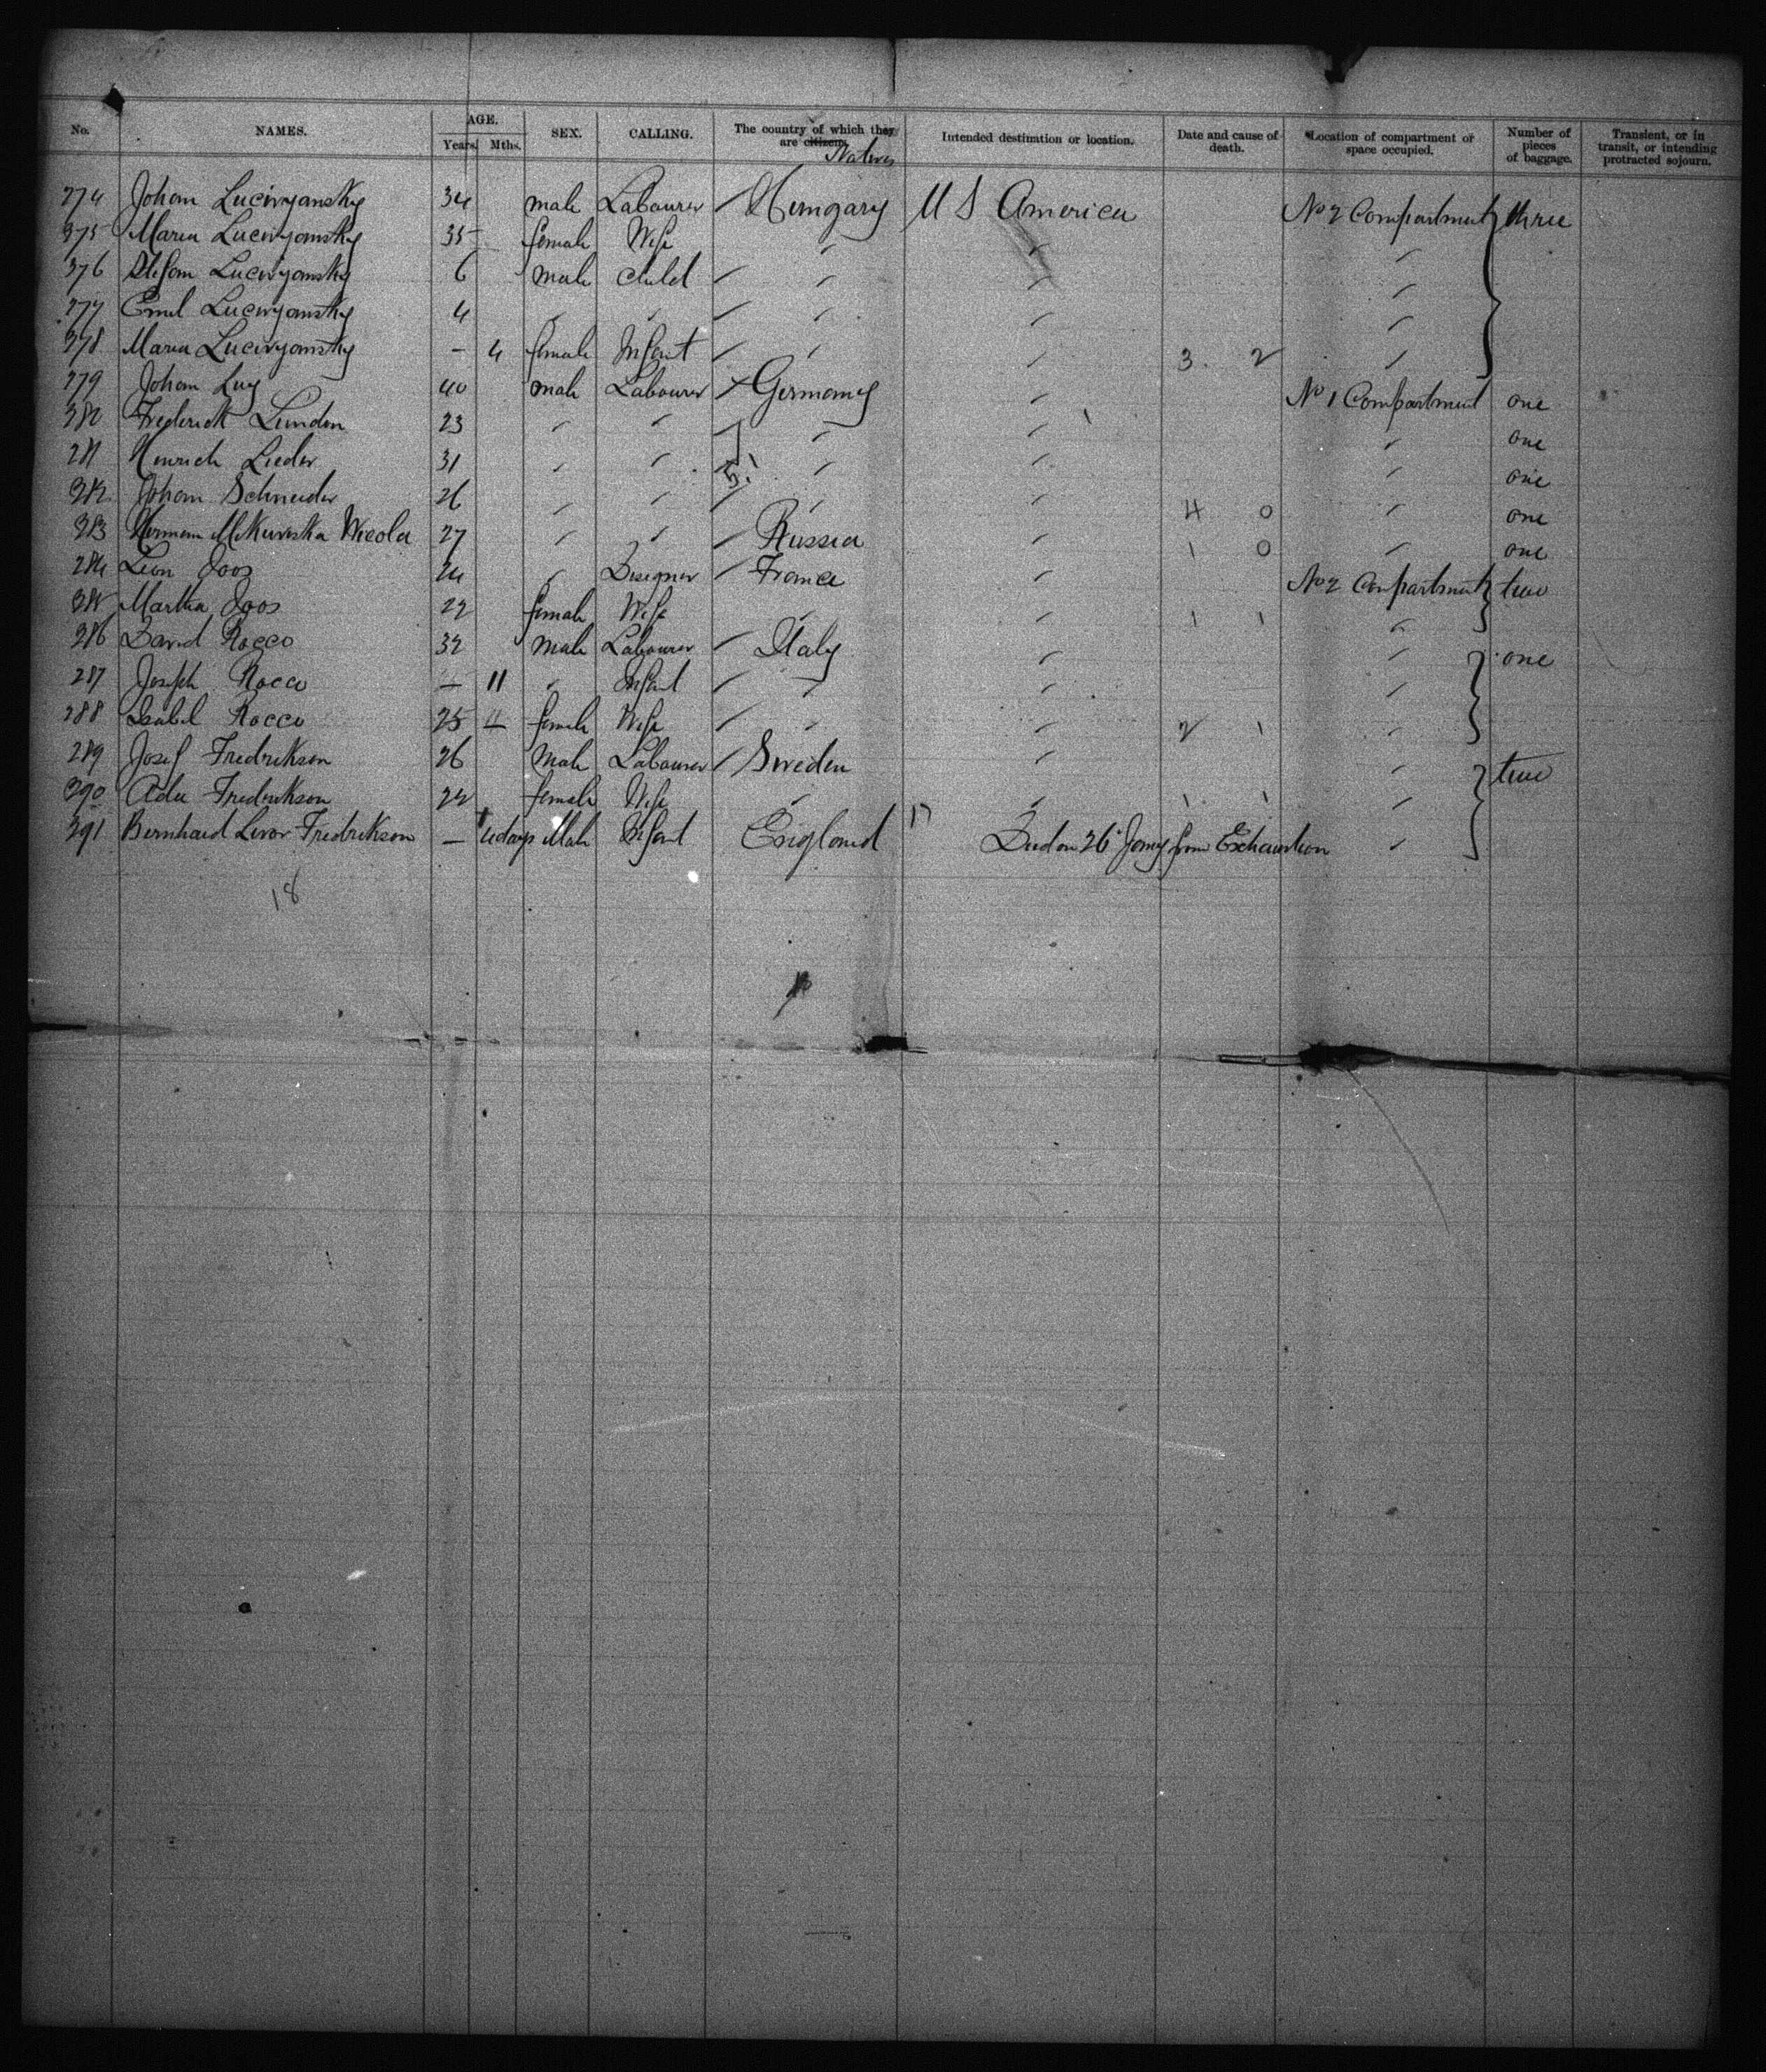 No. NAMES. AGE. Years. Mths. SEX. CALLING. The country of which they are citizens. Natives Intended destination or location. Date and cause of death. Location of compartment or space occupied. Number of pieces of baggage. Transient, or in transit, or intending protracted sojourn.
274 Johan Lucivyansky 34 male Labourer Hungary U S America No 2 Compartment three
275 Maria Lucivyansky 35 female Wife
276 Stefan Lucivyansky 6 male child
277 Emil Lucivyansky 4
278 Maria Lucivyansky - 4 female Infant 3. 2
279 Johan Luy 40 male Labourer Germany No 1 Compartment one
280 Frederick Lunden 23 one
281 Hinrich Lieder 31 one
282 Johan Schneider 26 4 0 one
283 Herman Nicola 27 Russia 1 0 one
284 Leon Joos 24 Designer France No 2 Compartment two
285 Martha Joos 22 female Wife 1 1
286 David Rocco 32 male Labourer Italy one
287 Joseph Rocco — 11 Infant
288 Isabel Rocco 25 female Wife 2 1
289 Josef Fredrikson 26 Male Labourer Sweden two
290 Ada Fredrikson 22 female Wife 1 1
291 Bernhard Fredrikson — days Male Infant England 17 Died on 26 Jany from Exhaustion
18